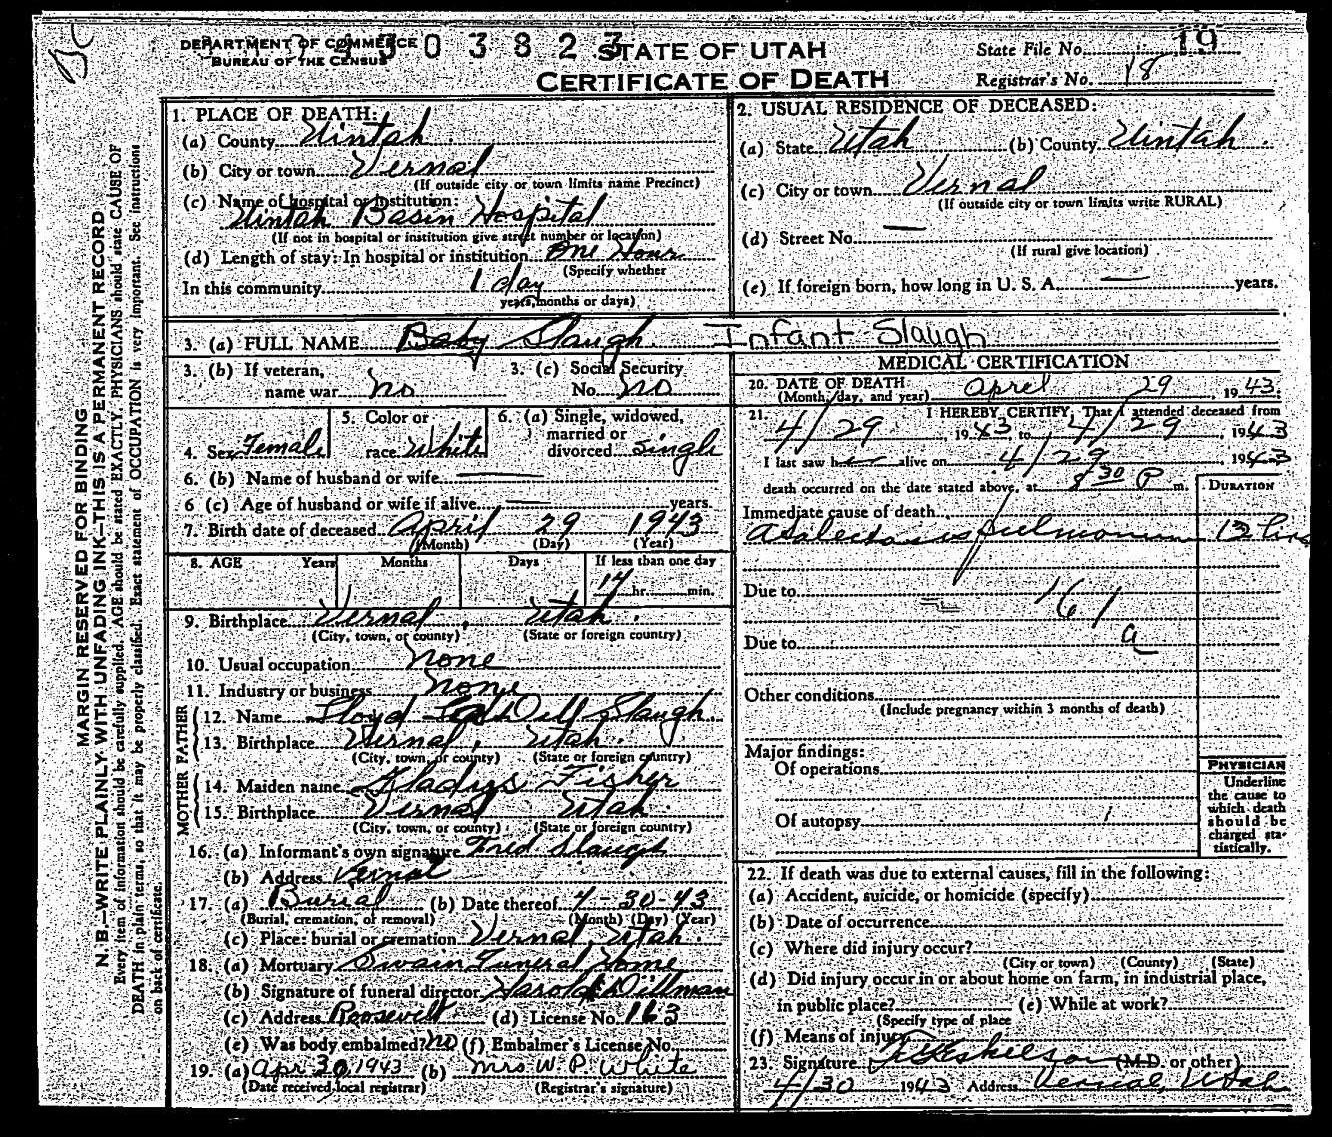 DEPARTMENT OF COMMERCE
BUREAU OF THE CENSUS
03823
STATE OF UTAH
CERTIFICATE OF DEATH
State File No. 19
Registrar's No. 18
MARGIN RESERVED FOR BINDING
N. B.—WRITE PLAINLY WITH UNFADING INK—THIS IS A PERMANENT RECORD
Every item of information should be carefully supplied. AGE should be stated EXACTLY. PHYSICIANS should state CAUSE OF
DEATH in plain terms, so that it may be properly classified. Exact statement of OCCUPATION is very important. See instructions
on back of certificate.
1. PLACE OF DEATH:
(a) County Uintah
(b) City or town Vernal
(If outside city or town limits name Precinct)
(c) Name of hospital or institution:
Uintah Basin Hospital
(If not in hospital or institution give street number or location)
(d) Length of stay: In hospital or institution One Hour
(Specify whether
In this community 1 day
years, months or days)
2. USUAL RESIDENCE OF DECEASED:
(a) State Utah (b) County Uintah.
(c) City or town Vernal
(If outside city or town limits write RURAL)
(d) Street No. —
(If rural give location)
(e) If foreign born, how long in U. S. A. — years.
3. (a) FULL NAME Baby Slaugh. Infant Slaugh
3. (b) If veteran, name war no
3. (c) Social Security No. No
4. Sex Female
5. Color or race White
6. (a) Single, widowed, married or divorced Single
6. (b) Name of husband or wife —
6 (c) Age of husband or wife if alive — years.
7. Birth date of deceased April 29 1943
(Month) (Day) (Year)
8. AGE Years Months Days If less than one day
14 hr. min.
9. Birthplace Vernal, Utah.
(City, town, or county) (State or foreign country)
10. Usual occupation None
11. Industry or business None
FATHER
12. Name Floyd Slaugh.
13. Birthplace Vernal, Utah.
(City, town, or county) (State or foreign country)
MOTHER
14. Maiden name Gladys Fisher
15. Birthplace Vernal Utah.
(City, town, or county) (State or foreign country)
16. (a) Informant's own signature Fred Slaugh
(b) Address Vernal
17. (a) Burial (b) Date thereof 4-30-43
(Burial, cremation, or removal) (Month) (Day) (Year)
(c) Place: burial or cremation Vernal, Utah.
18. (a) Mortuary Swain Funeral Home
(b) Signature of funeral director Harold Dillman
(c) Address Roosevelt (d) License No. 163
(e) Was body embalmed? No (f) Embalmer's License No.
19. (a) Apr 30, 1943 (b) Mrs W. P. White
(Date received local registrar) (Registrar's signature)
MEDICAL CERTIFICATION
20. DATE OF DEATH April 29, 1943.
(Month, day, and year)
21. I HEREBY CERTIFY, That I attended deceased from
4/29, 1943 to 4/29, 1943
I last saw her alive on 4/29, 1943
death occurred on the date stated above, at 8 30 P m.
DURATION
Immediate cause of death
Atalectasis pulmonum 13 hrs
Due to 161
a
Due to
Other conditions
(Include pregnancy within 3 months of death)
Major findings:
Of operations
Of autopsy
PHYSICIAN
Underline
the cause to
which death
should be
charged sta-
tistically.
22. If death was due to external causes, fill in the following:
(a) Accident, suicide, or homicide (specify)
(b) Date of occurrence
(c) Where did injury occur?
(City or town) (County) (State)
(d) Did injury occur in or about home on farm, in industrial place,
in public place? (e) While at work?
(Specify type of place
(f) Means of injury
23. Signature (M.D. or other)
4/30 1943 Address Vernal, Utah